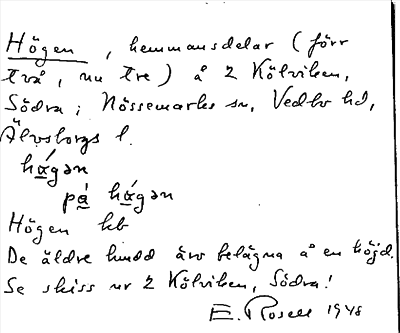 Högen, hemmansdelar (förr
två, nu tre) å 2 Kölviken,
Södra; Nössemarks sn, Vedbo hd,
Älvsborgs l.
há̱gən
pá̱ há̱gən
Högen hb
De äldre hmdd äro belägna å en höjd.
Se skiss ur 2 Kölviken, Södra!
E. Rosell 1948